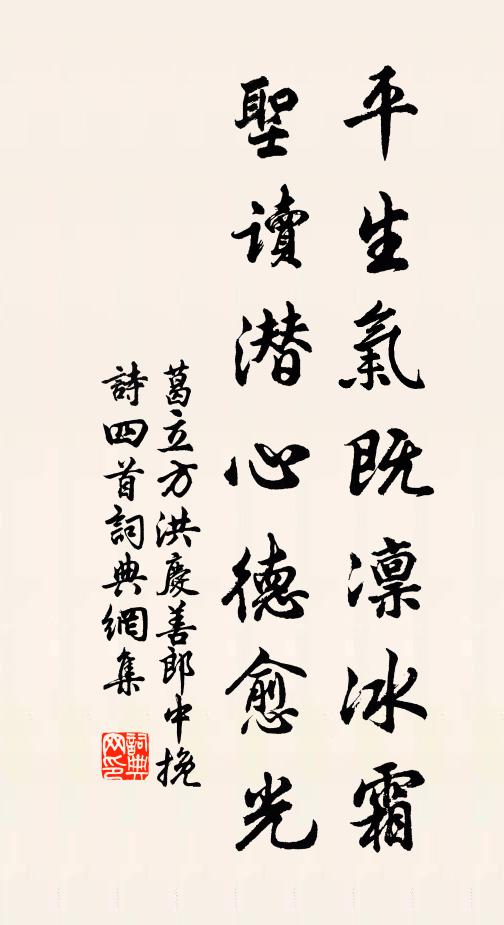 平生氣既凛冰霜
聖读潜心德愈光
葛立方洪慶善郎中挽
詩四首詞典網集
詞典網印